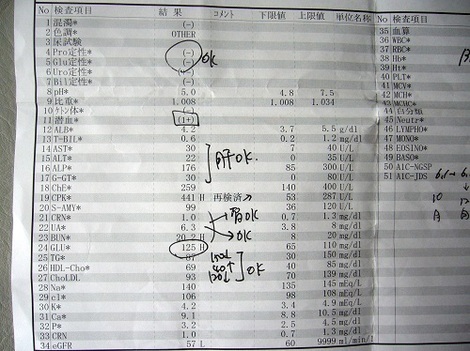 No 検査項目 結果 コメント 下限値 上限値 単位名称 No 検査項目
1 混濁* (-)
2 色調* OTHER
3 尿試験
4 Pro定性* (-)
5 Glu定性* (-) OK
6 Uro定性* (-)
7 Bil定性* (-)
8 pH* 5.0 4.8 7.5
9 比重* 1.008 1.008 1.034
10 ケトン体* (-)
11 潜血* (1+)
12 ALB* 4.2 3.7 5.5 g/dl
13 T-BIL* 0.6 0.2 1.2 mg/dl
14 AST* 30 7 40 U/L
15 ALT* 22 0 35 U/L
16 ALP* 176 85 300 U/L
17 G-GT* 30 0 80 U/L
肝OK.
18 ChE* 259 140 400 U/L
19 CPK* 441 H 再検済み 53 287 U/L
20 S-AMY* 99 36 120 U/L
21 CRN* 1.0 0.7 1.3 mg/dl
22 UA* 6.3 3.8 8 mg/dl
23 BUN* 20.2 H 8 20 mg/dl
腎OK
OK
24 GLU* 125 H 65 110 mg/dl
25 TG* 30 150 mg/dl
26 HDL-Cho* 69 40 85 mg/dl
27 CholLDL 93 70 139 mg/dl
OK
28 Na* 140 135 145 mEq/l
29 cl* 106 98 108 mEq/l
30 K* 4.4 3.5 5 mEq/L
31 Ca* 9.1 8.8 10.5 mg/dl
32 P* 3.2 2.5 4.5 mg/dl
33 CRN 1.0 0.7 1.3 mg/dl
34 eGFR 57 L 60 9999 ml/min/1
35 血算
36 WBC*
37 RBC*
38 Hb*
39 Ht*
40 PLT*
41 MCV*
42 MCH*
43 MCHC*
44 自分類
45 Neutr*
46 LYMPHO*
47 MONO*
48 EOSINO*
49 BASO*
50 A1C-NGSP
51 A1C-JDS
10
月